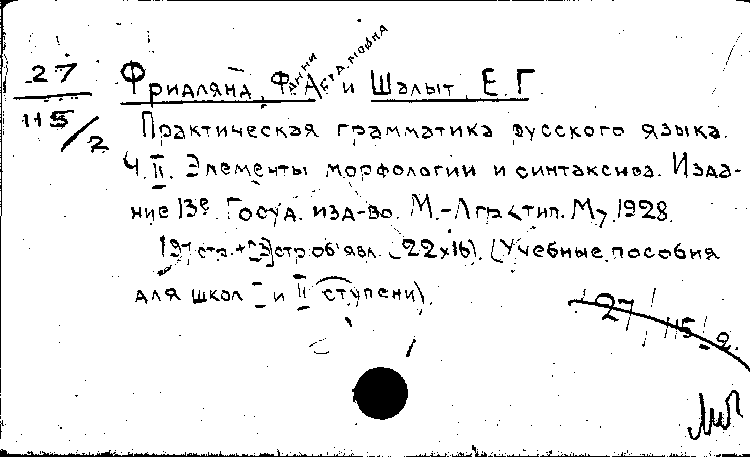 27
115/2
Фридлянд, Фанни А. и Шалыт, Е. Г.
Практическая грамматика русского языка.
Ч. II. Элементы морфологии и синтаксиса. Изда-
ние 13е. Госуд. изд-во. М.-Л тип. М, 1928.
стр. + стр. об'явл. (22х16). (Учебные пособия
для школ I и II ступени).
27 115 2.